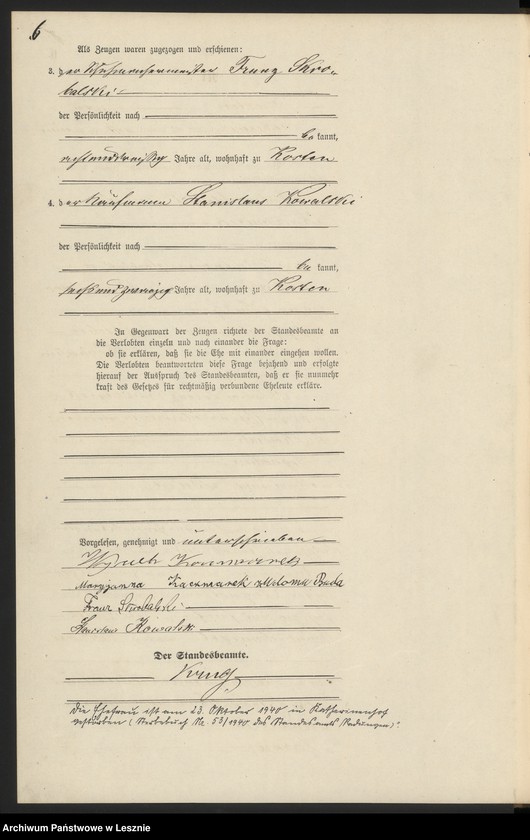 6
Als Zeugen waren zugezogen und erschienen:
3. der Schuhmachermeister Franz Skro-
balski
der Persönlichkeit nach
be kannt,
achtunddreißig Jahre alt, wohnhaft zu Kosten
4. der Kaufmann Stanislaus Kowalski
der Persönlichkeit nach
be kannt,
sechsundzwanzig Jahre alt, wohnhaft zu Kosten
In Gegenwart der Zeugen richtete der Standesbeamte an
die Verlobten einzeln und nach einander die Frage:
ob sie erklären, daß sie die Ehe mit einander eingehen wollen.
Die Verlobten beantworteten diese Frage bejahend und erfolgte
hierauf der Ausspruch des Standesbeamten, daß er sie nunmehr
kraft des Gesetzes für rechtmäßig verbundene Eheleute erkläre.
Vorgelesen, genehmigt und unterschrieben
Kaczmarek
Maryjanna Kaczmarek z domu Buda
Franz Skrobalski
Kowalski
Der Standesbeamte.
Die Ehefrau ist am 23. Oktober 1940 in Katharinenhof
verstorben (Sterbebuch Nr. 53/1940 des Standesamts
Archiwum Państwowe w Lesznie